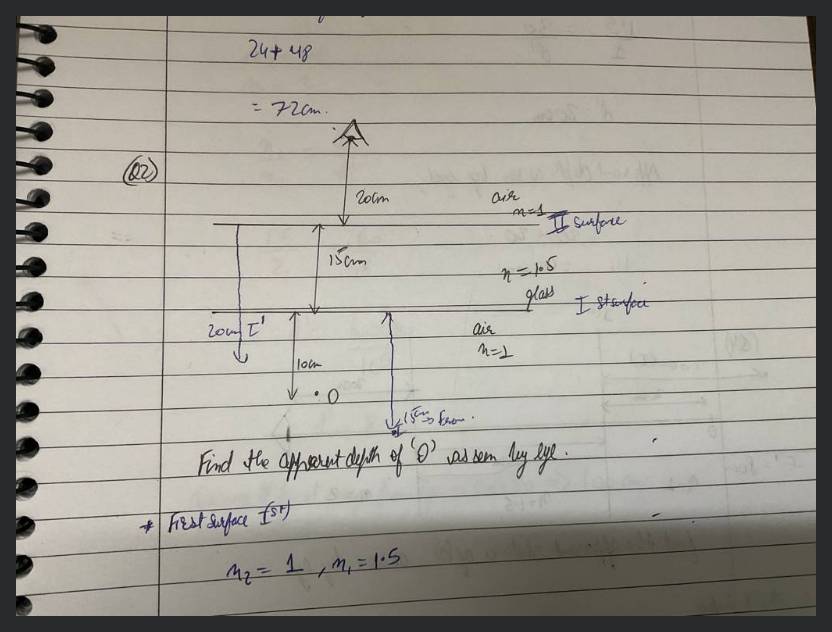 24+48
= 72cm.
(Q2)
20cm
air
n=1
II surface
15cm
n=1.5
glass
I st surface
20cm I'
air
n=1
10cm
. O
15cm
Find the apparent depth of 'O' as seen by eye.
* First surface I(st)
n2 = 1 , n1 = 1.5